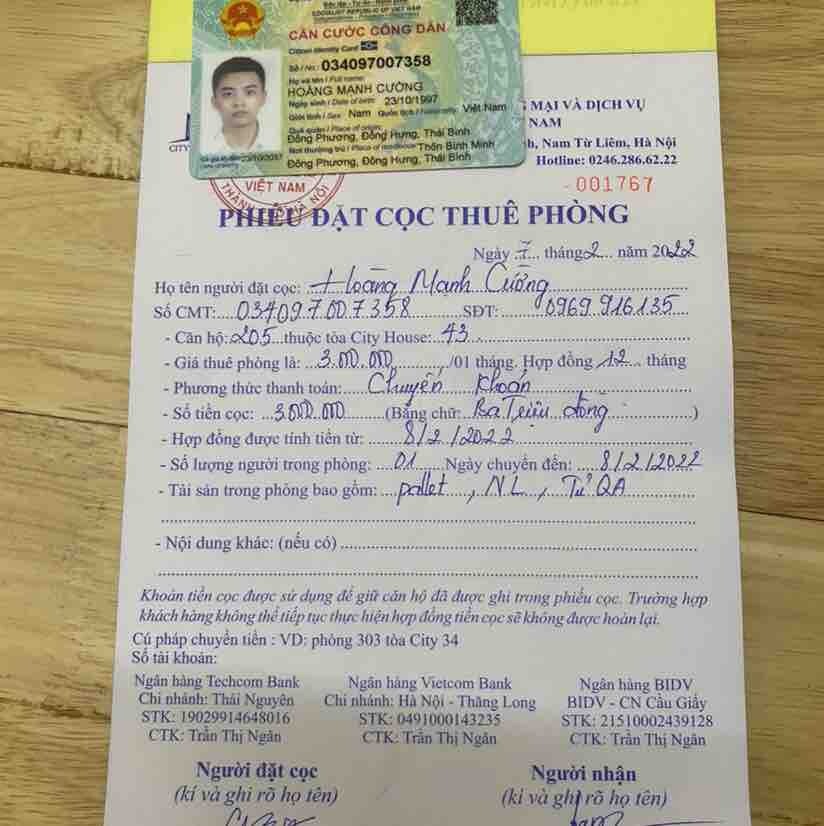 SOCIALIST REPUBLIC OF VIET NAM
CĂN CƯỚC CÔNG DÂN
Citizen Identity Card
Số / No.: 034097007358
Họ và tên / Full name:
HOÀNG MẠNH CƯỜNG
Ngày sinh / Date of birth: 23/10/1997
Giới tính / Sex: Nam Quốc tịch / Nationality: Việt Nam
Quê quán / Place of origin:
Đông Phương, Đông Hưng, Thái Bình
Nơi thường trú / Place of residence: Thôn Bình Minh
Đông Phương, Đông Hưng, Thái Bình
23/10/2037
MẠI VÀ DỊCH VỤ
NAM
CITY
h, Nam Từ Liêm, Hà Nội
Hotline: 0246.286.62.22
-001767
VIỆT NAM
THÀNH HÀ NỘI
PHIẾU ĐẶT CỌC THUÊ PHÒNG
Ngày 7 tháng 2 năm 2022
Họ tên người đặt cọc: Hoàng Mạnh Cường
Số CMT: 034097007358 SĐT: 0969916135
- Căn hộ: 205 thuộc tòa City House: 43
- Giá thuê phòng là: 3.000.000 /01 tháng. Hợp đồng 12 tháng
- Phương thức thanh toán: Chuyển khoản
- Số tiền cọc: 3.000.000 (Bằng chữ: Ba Triệu đồng )
- Hợp đồng được tính tiền từ: 8/2/2022
- Số lượng người trong phòng: 01 Ngày chuyển đến: 8/2/2022
- Tài sản trong phòng bao gồm: pallet, NL, Tủ QA
- Nội dung khác: (nếu có)
Khoản tiền cọc được sử dụng để giữ căn hộ đã được ghi trong phiếu cọc. Trường hợp
khách hàng không thể tiếp tục thực hiện hợp đồng tiền cọc sẽ không được hoàn lại.
Cú pháp chuyển tiền : VD: phòng 303 tòa City 34
Số tài khoản:
Ngân hàng Techcom Bank
Chi nhánh: Thái Nguyên
STK: 19029914648016
CTK: Trần Thị Ngân
Ngân hàng Vietcom Bank
Chi nhánh: Hà Nội - Thăng Long
STK: 0491000143235
CTK: Trần Thị Ngân
Ngân hàng BIDV
BIDV - CN Cầu Giấy
STK: 21510002439128
CTK: Trần Thị Ngân
Người đặt cọc
(kí và ghi rõ họ tên)
Người nhận
(kí và ghi rõ họ tên)